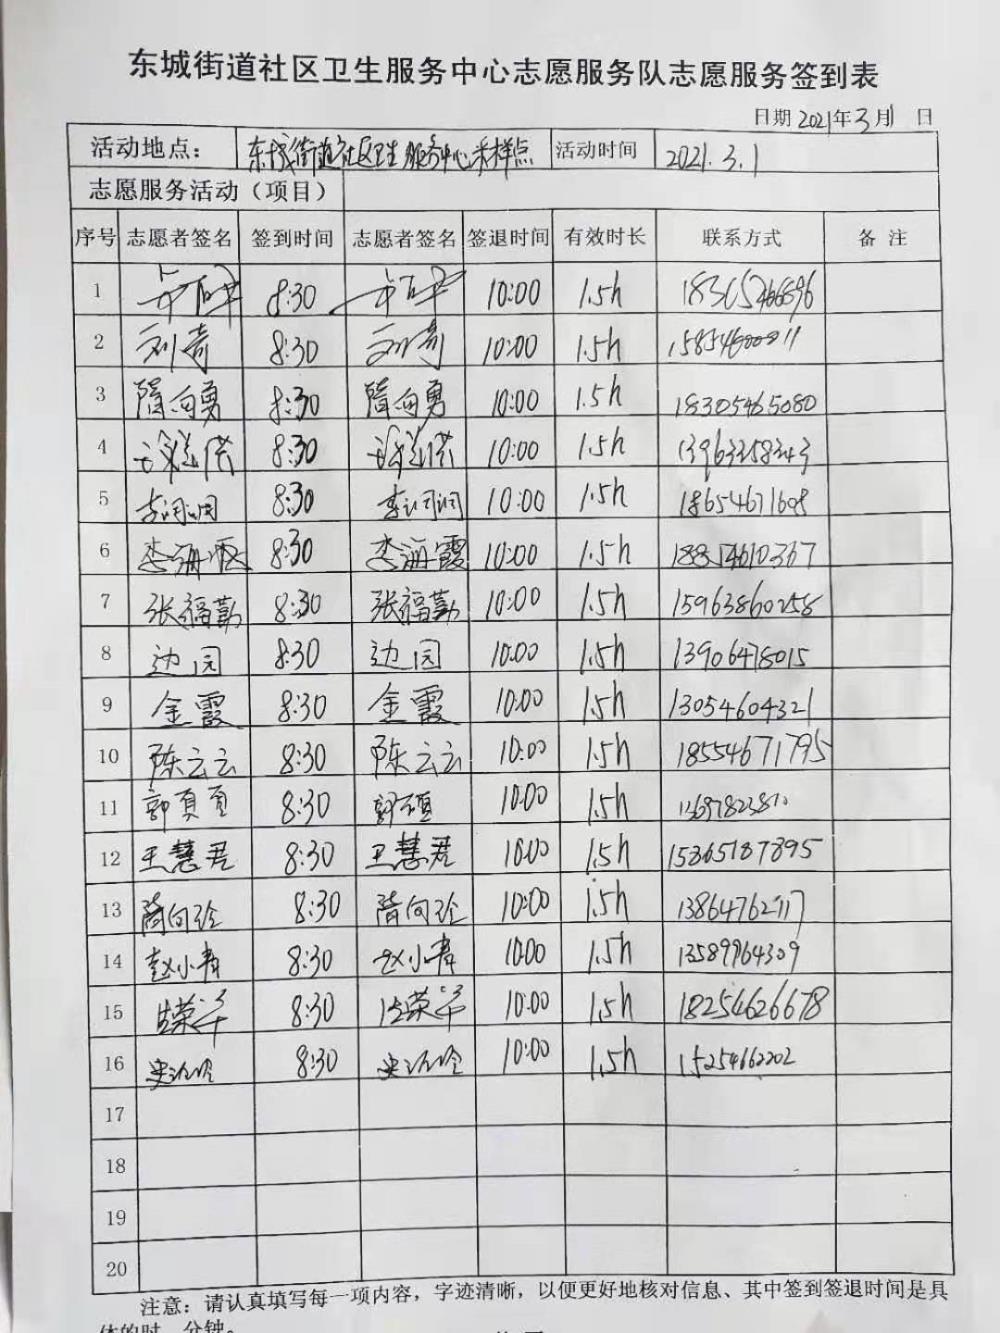 东城街道社区卫生服务中心志愿服务队志愿服务签到表
日期 2021年3月1日
活动地点： 东城街道社区卫生服务中心采样点 活动时间 2021.3.1
志愿服务活动（项目）
序号 志愿者签名 签到时间 志愿者签名 签退时间 有效时长 联系方式 备 注
1 8:30 10:00 1.5h
2 刘奇 8:30 刘奇 10:00 1.5h
3 隋向勇 8:30 隋向勇 10:00 1.5h 18305465080
4 8:30 10:00 1.5h 13963358343
5 李润润 8:30 李润润 10:00 1.5h 18654671608
6 李海霞 8:30 李海霞 10:00 1.5h 18854610367
7 张福勤 8:30 张福勤 10:00 1.5h 15963860258
8 边园 8:30 边园 10:00 1.5h 13906418015
9 金霞 8:30 金霞 10:00 1.5h 13054604321
10 陈云云 8:30 陈云云 10:00 1.5h 18554671795
11 8:30 10:00 1.5h
12 王慧君 8:30 王慧君 10:00 1.5h 15365187895
13 隋向玲 8:30 隋向玲 10:00 1.5h 13864762117
14 赵小青 8:30 赵小青 10:00 1.5h 13589964309
15 8:30 10:00 1.5h 18254626678
16 8:30 10:00 1.5h 15254662202
17
18
19
20
注意：请认真填写每一项内容，字迹清晰，以便更好地核对信息、其中签到签退时间是具
体的时、分钟。